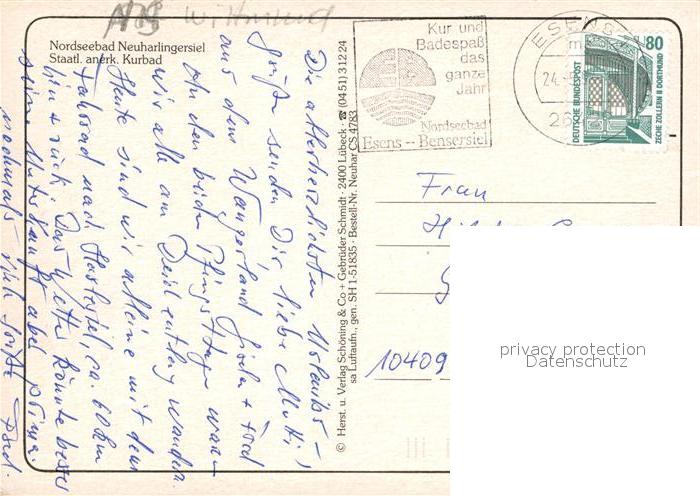 Wittmund
Nordseebad Neuharlingersiel
Staatl. anerk. Kurbad
Die allerherzlichsten Urlaubs-
grüße senden Dir, liebe Mutti,
aus dem Wangerland Gisela + Ford
An den beiden Pfingsttagen waren
wir alle am Deich entlang wandern.
Heute sind wir alleine mit dem
Fahrrad nach Harlesiel ca. 60 km
hin + zurück. Das Wetter könnte besser
sein. Unterkunft aber prima.
nochmals
© Herst. u. Verlag Schöning & Co + Gebrüder Schmidt · 2400 Lübeck · ☎ (04 51) 3 12 24
sa Luftaufn., gen. SH 1-51835 · Bestell-Nr. Neuhar CS 4783
Kur und
Badespaß
das
ganze
Jahr
Nordseebad
Esens -- Bensersiel
ESENS
24.
80
DEUTSCHE BUNDESPOST
ZECHE ZOLLERN II DORTMUND
Frau
10409
privacy protection
Datenschutz